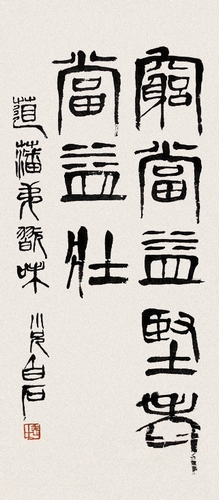 窮當益堅老
當益壯
道藩弟味小兄白石